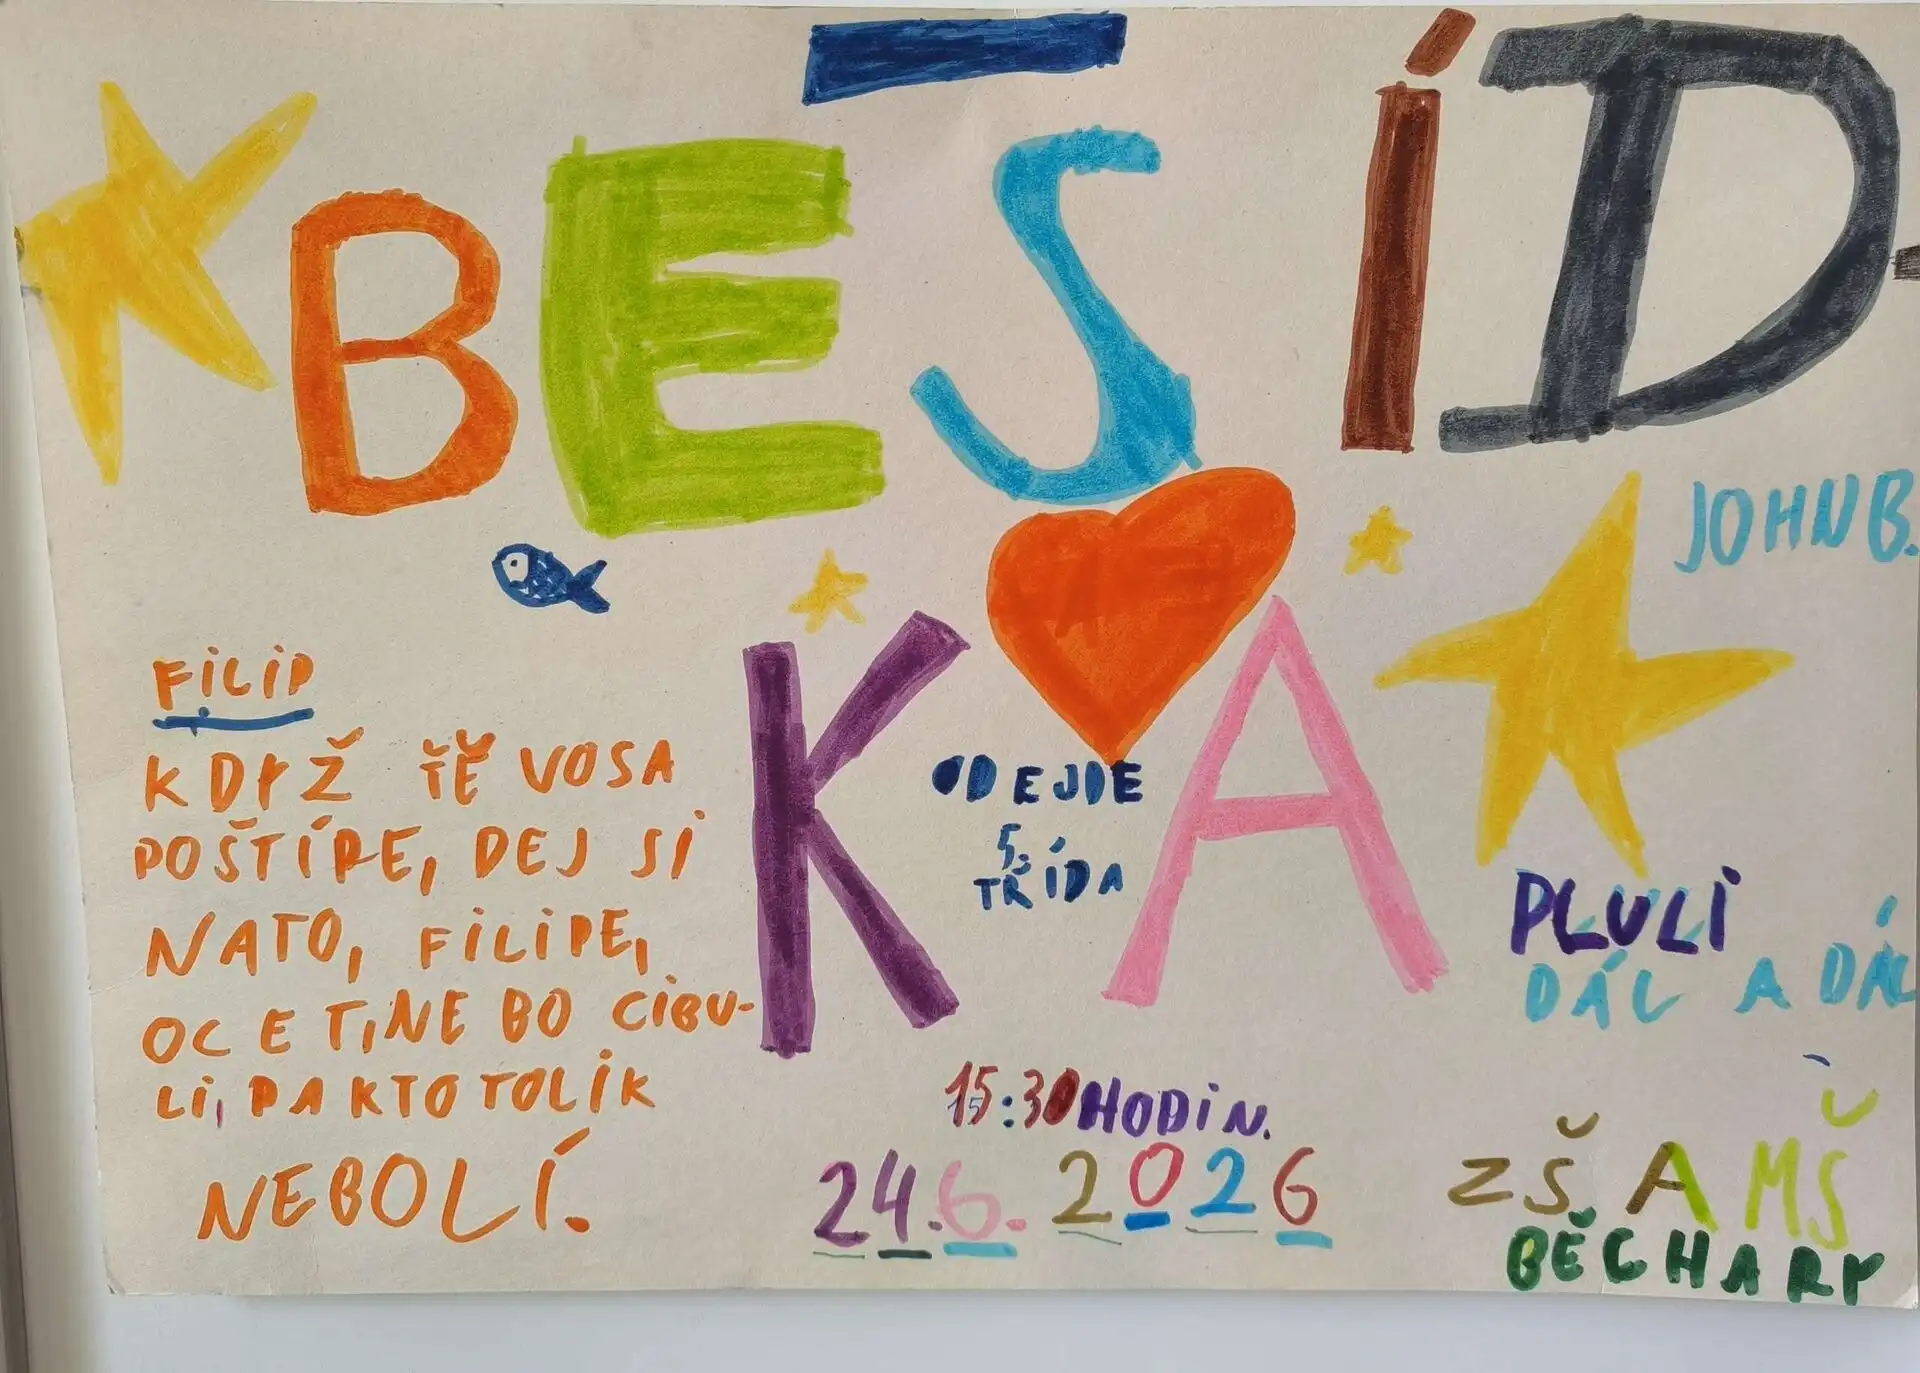 BESÍD-
KA
JOHN B.
FILIP
KDYŽ TĚ VOSA
POŠTÍPE, DEJ SI
NATO, FILIPE,
OCETINE BO CIBU-
LI, PAKTO TOLIK
NEBOLÍ.
ODEJDE
5.
TŘÍDA
PLULI
DÁL A DÁL
15:30 HODIN.
24.6. 2026
ZŠ A MŠ
BĚCHARY